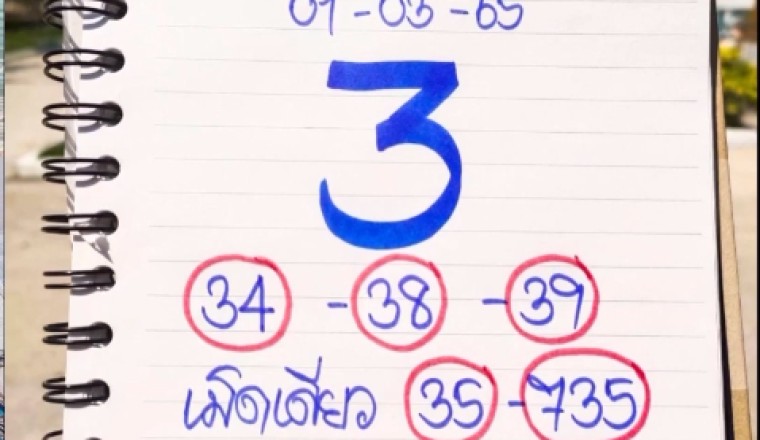 01-03-65
3
34 - 38 - 39
เม็ดเดียว 35 - 735